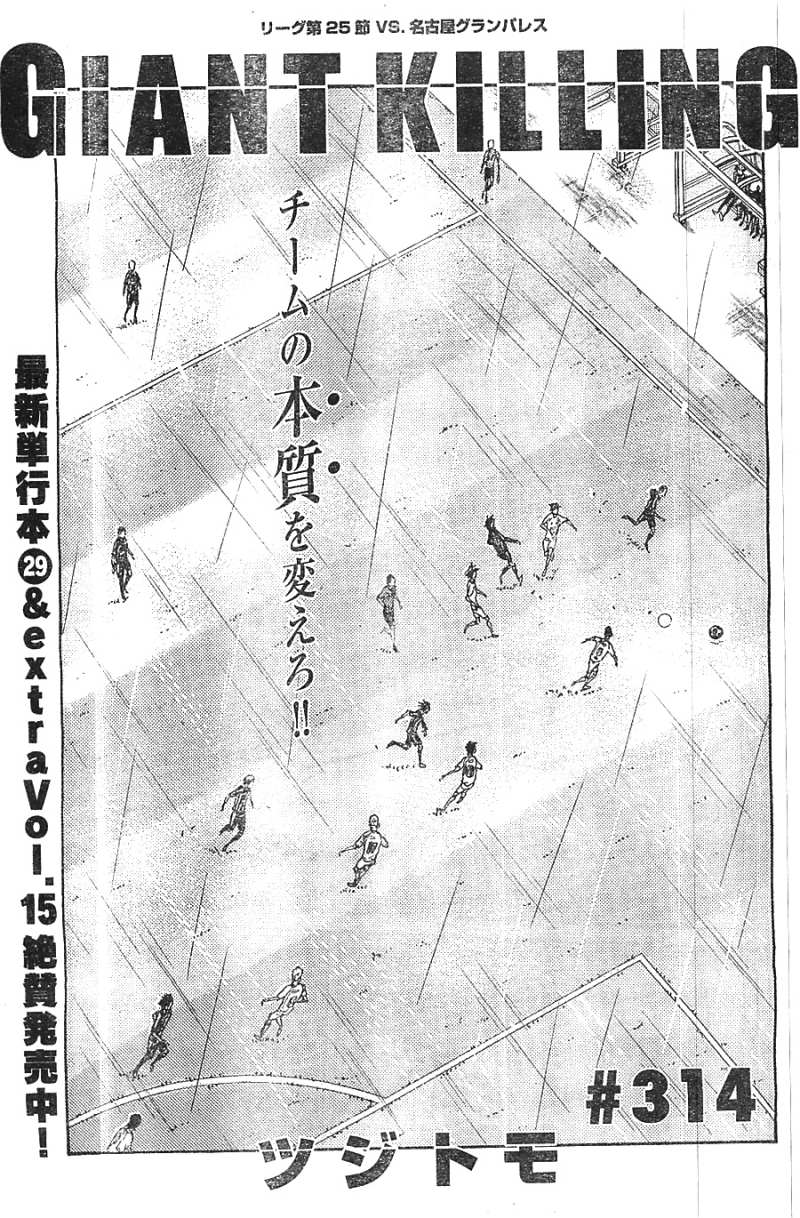 リーグ第25節 VS. 名古屋グランパレス
GIANT KILLING
チームの本質を変えろ!!
最新単行本㉙&extraVol.15絶賛発売中!
#314
ツジトモ